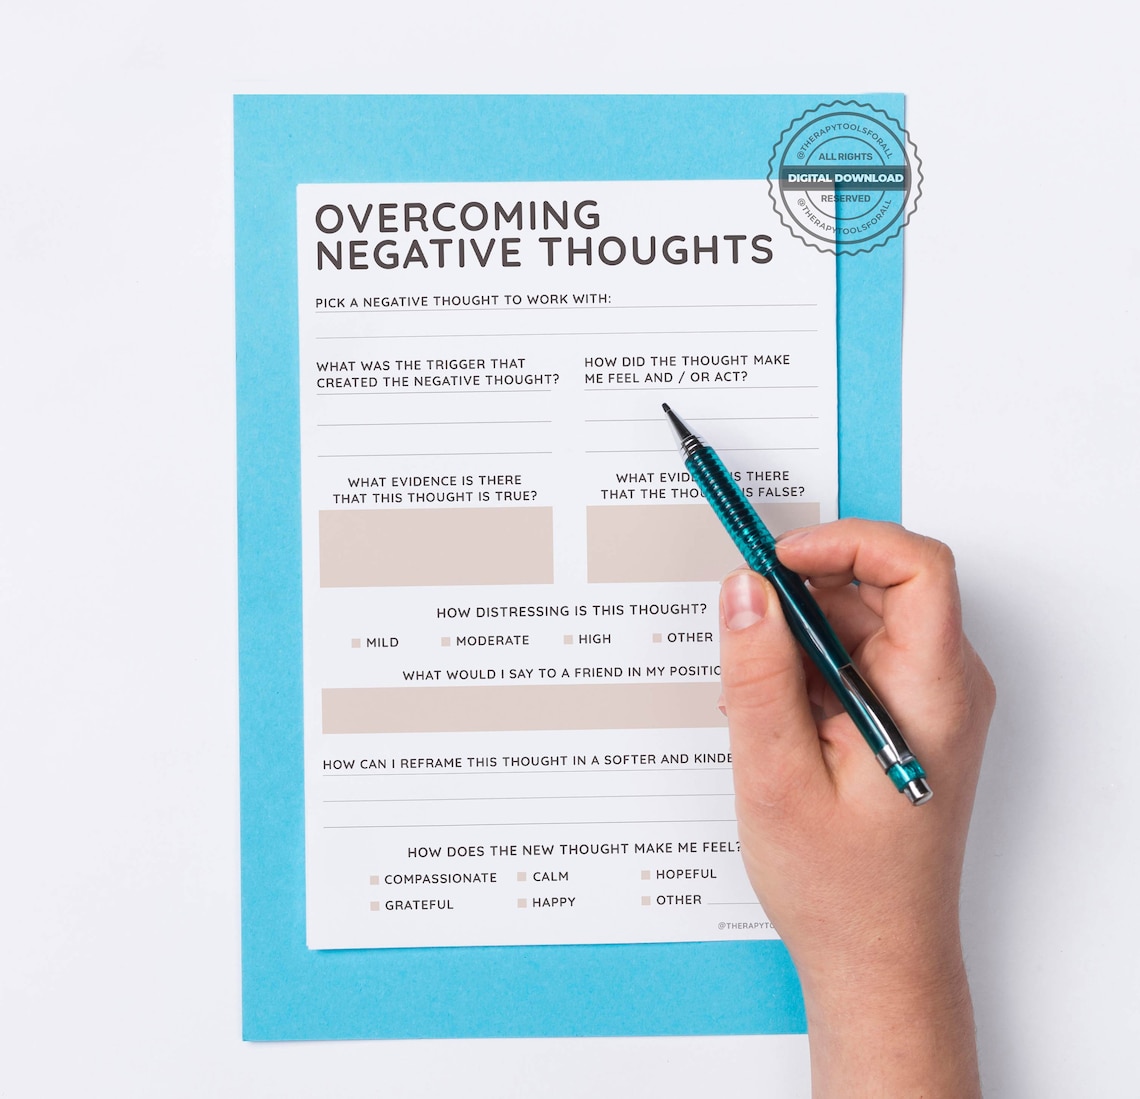 @THERAPYTOOLSFORALL
ALL RIGHTS
DIGITAL DOWNLOAD
RESERVED
@THERAPYTOOLSFORALL
OVERCOMING
NEGATIVE THOUGHTS
PICK A NEGATIVE THOUGHT TO WORK WITH:
WHAT WAS THE TRIGGER THAT
CREATED THE NEGATIVE THOUGHT?
HOW DID THE THOUGHT MAKE
ME FEEL AND / OR ACT?
WHAT EVIDENCE IS THERE
THAT THIS THOUGHT IS TRUE?
WHAT EVID IS THERE
THAT THE THOU IS FALSE?
HOW DISTRESSING IS THIS THOUGHT?
MILD MODERATE HIGH OTHER
WHAT WOULD I SAY TO A FRIEND IN MY POSITIO
HOW CAN I REFRAME THIS THOUGHT IN A SOFTER AND KINDE
HOW DOES THE NEW THOUGHT MAKE ME FEEL?
COMPASSIONATE CALM HOPEFUL
GRATEFUL HAPPY OTHER
@THERAPYTO